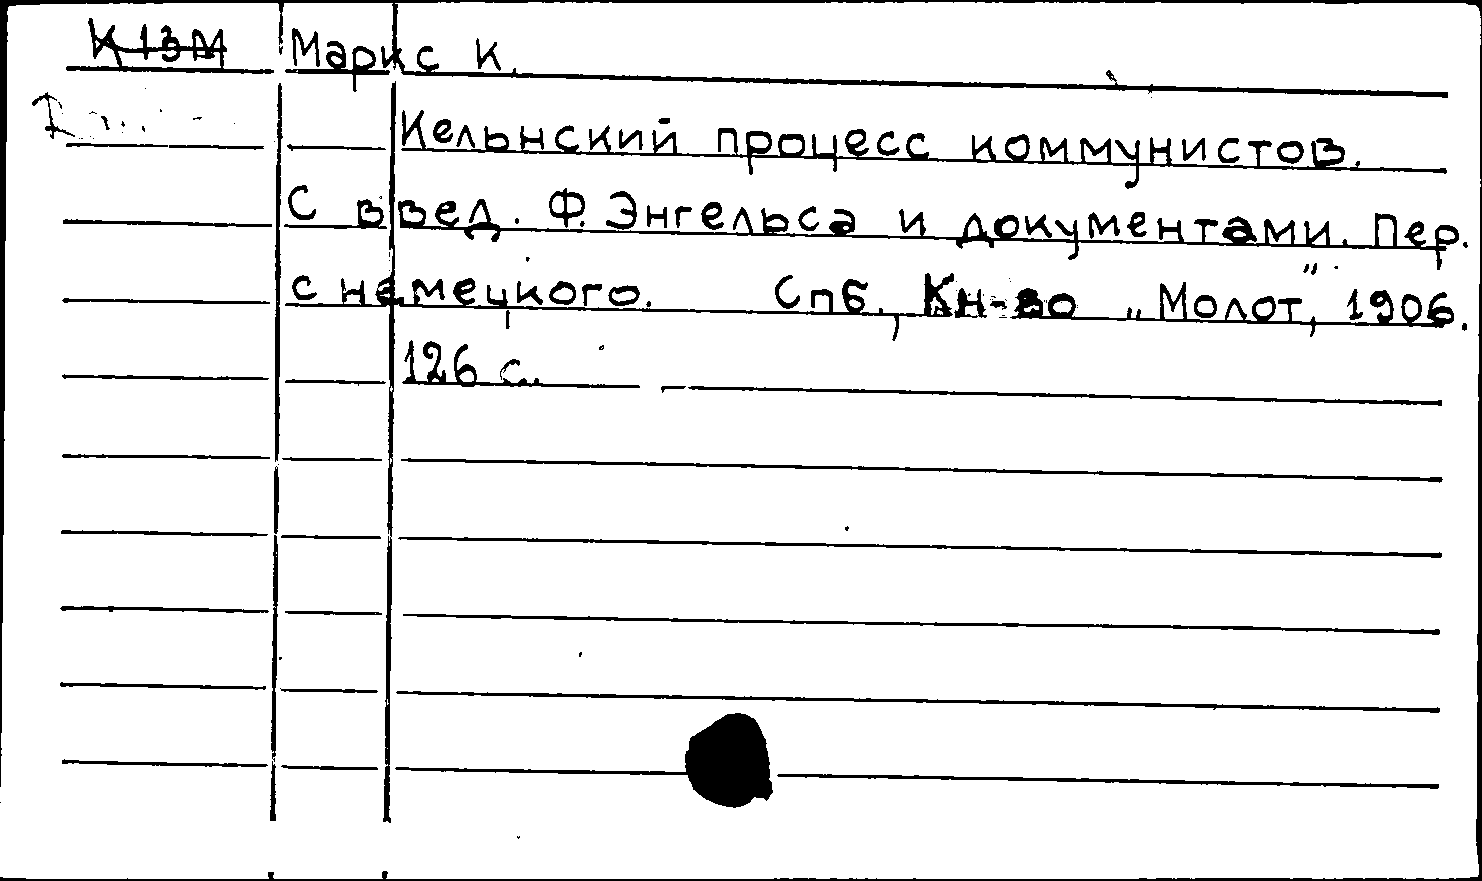 К13М Маркс К.
Кельнский процесс коммунистов.
С введ. Ф. Энгельса и документами. Пер.
с немецкого. Спб., Кн-во „Молот", 1906.
126 с.